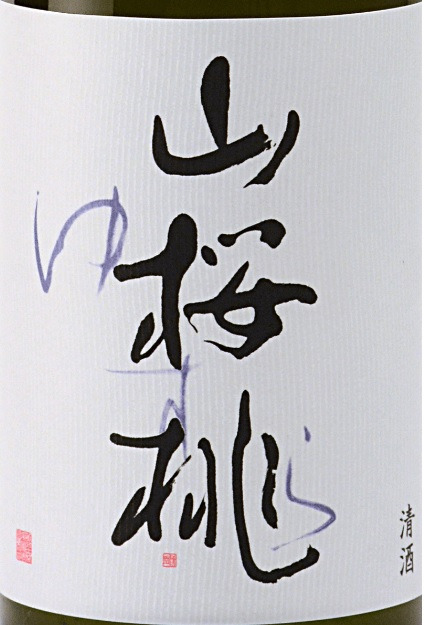 山桜桃
ゆすら
清酒